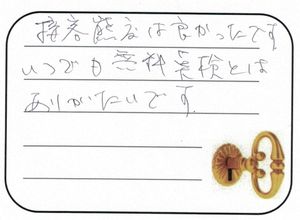 接客態度は良かったです
いつでも無料点検とは
ありがたいです.